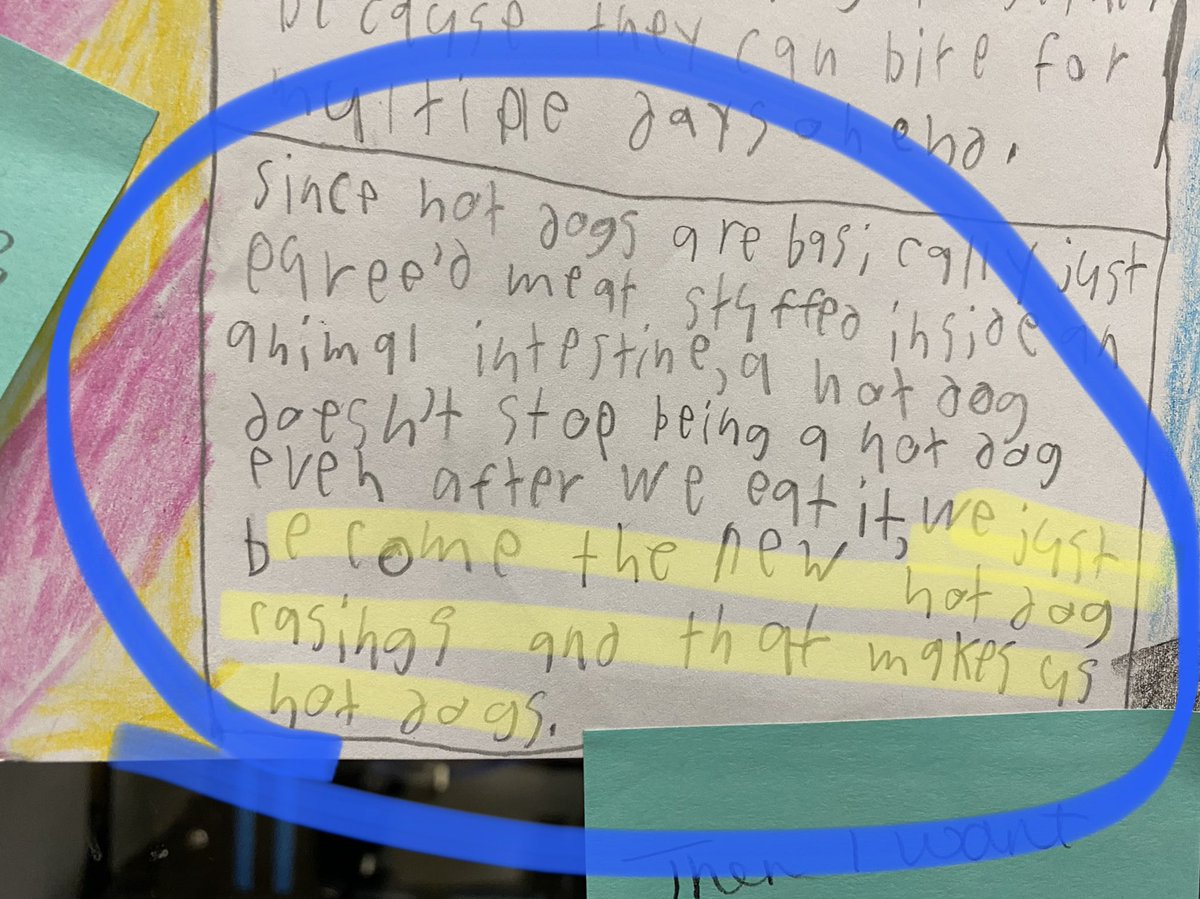 because they can bite for
multiple days ahead.
Since hot dogs are basically just
pareé'd meat stuffed inside an
animal intestine, a hot dog
doesn't stop being a hot dog
even after we eat it, we just
become the new hot dog
casings and that makes us
hot dogs.
Then I want